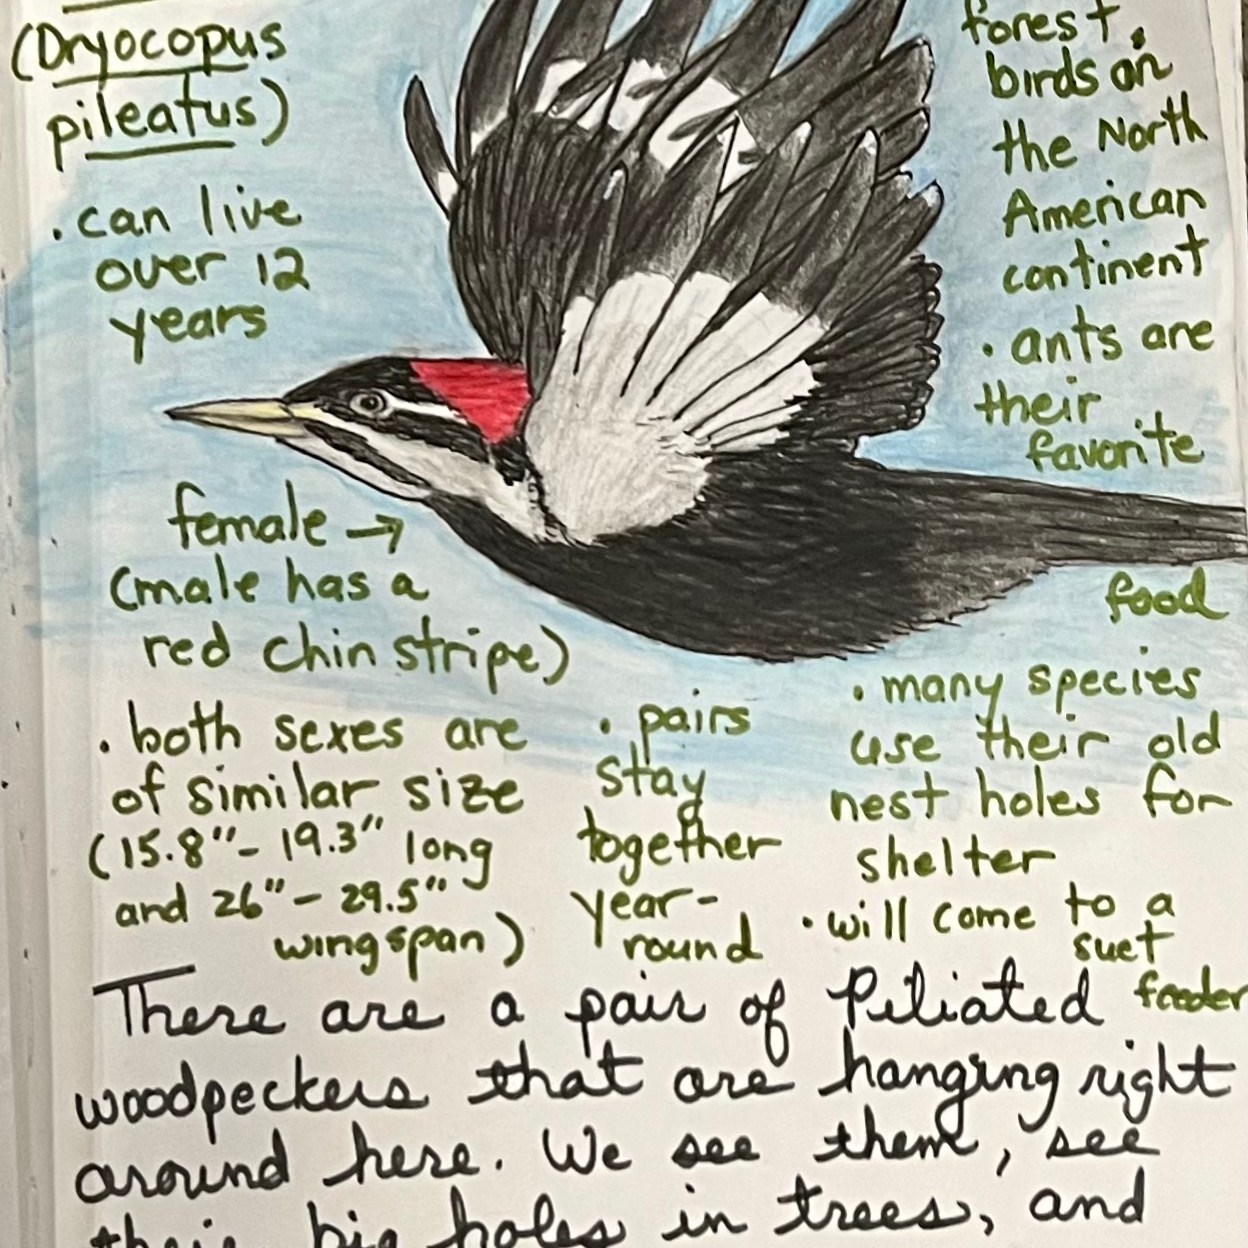 (Dryocopus
pileatus)
. can live
over 12
years
forest
birds on
the North
American
continent
. ants are
their
favorite
food
female →
(male has a
red chin stripe)
. both sexes are
of similar size
(15.8"- 19.3" long
and 26"- 29.5"
wingspan)
. pairs
stay
together
year-
round
. many species
use their old
nest holes for
shelter
. will come to a
suet
feeder
There are a pair of Piliated
woodpeckers that are hanging right
around here. We see them, see
their big holes in trees, and